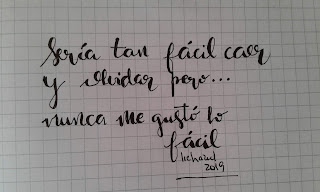 Sería tan fácil caer
y olvidar pero...
nunca me gustó lo
fácil
2019